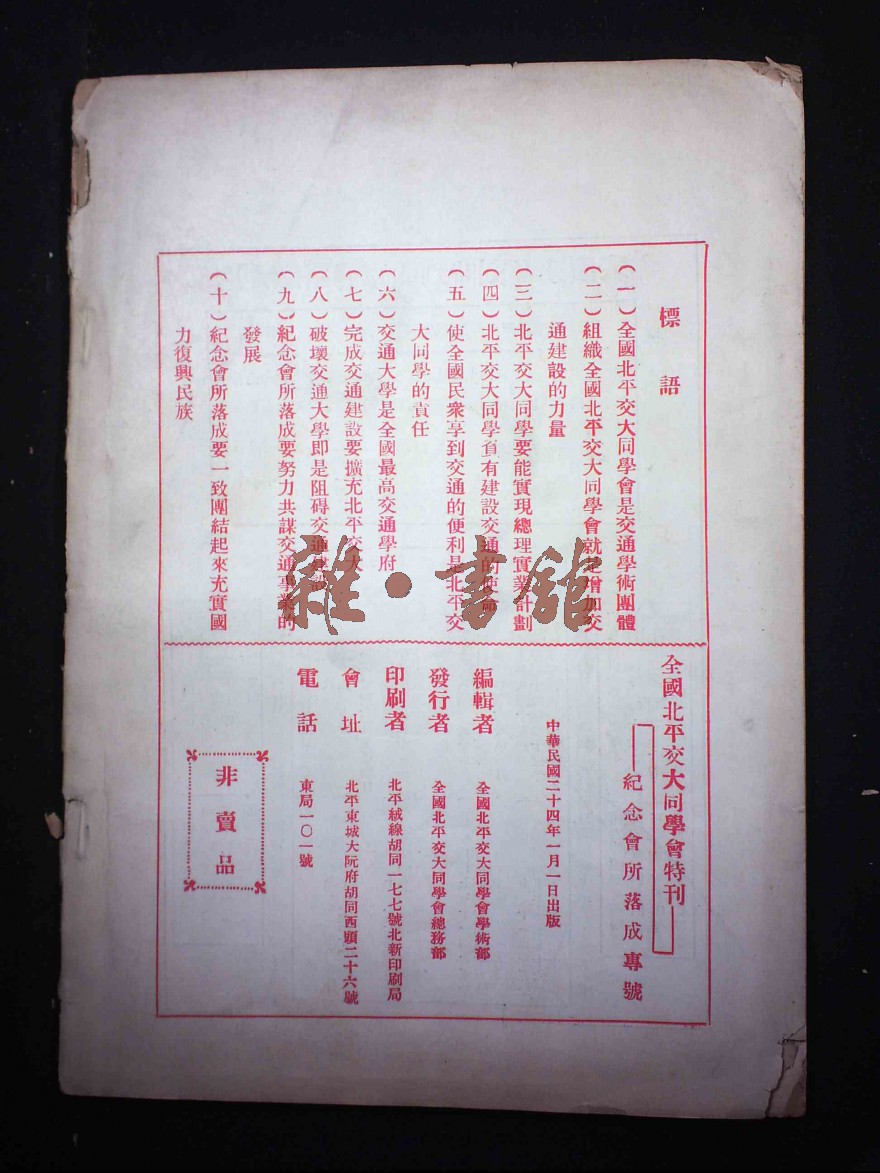 標語
（一）全國北平交大同學會是交通學術團體
（二）組織全國北平交大同學會就是增加交
通建設的力量
（三）北平交大同學要能實現總理實業計劃
（四）北平交大同學負有建設交通的使命
（五）使全國民衆享到交通的便利是北平交
大同學的責任
（六）交通大學是全國最高交通學府
（七）完成交通建設要擴充北平交大
（八）破壞交通大學即是阻碍交通建設
（九）紀念會所落成要努力共謀交通事業的
發展
（十）紀念會所落成要一致團結起來充實國
力復興民族
全國北平交大同學會特刊
紀念會所落成專號
中華民國二十四年一月一日出版
編輯者 全國北平交大同學會學術部
發行者 全國北平交大同學會總務部
印刷者 北平絨線胡同一七七號北新印刷局
會址 北平東城大阮府胡同西頭二十六號
電話 東局一〇一號
非賣品
雜·書館